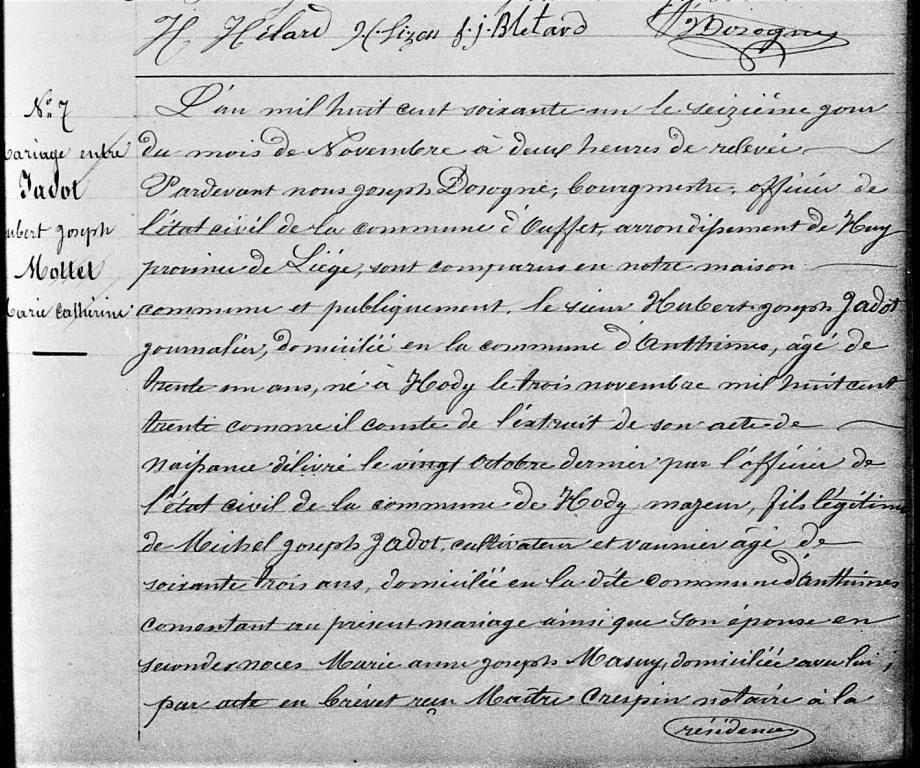 H. Hélard H. Lizen f. j. Bletard Dosogne
N° 7
Mariage entre
Jadot
Hubert joseph
Mottet
Marie Cathérine
L'an mil huit cent soixante un le seizième jour
du mois de Novembre à deux heures de relevée
Pardevant nous joseph Dosogne, bourgmestre, officier de
l'état civil de la commune d'Ouffet, arrondissement de Huy
province de Liége, sont comparus en notre maison
commune et publiquement, le sieur Hubert joseph Jadot
journalier, domicilié en la commune d'Anthinnes, âgé de
trente un ans, né à Hody le trois novembre mil huit cent
trente comme il conste de l'extrait de son acte de
Naissance délivré le vingt Octobre dernier par l'officier de
l'état civil de la commune de Hody majeur, fils légitime
de Michel joseph Jadot, cultivateur et vannier âgé de
soixante trois ans, domicilié en la dite commune d'Anthinnes
consentant au présent mariage ainsi que son épouse en
secondes noces Marie anne joseph Masuy, domiciliée avec lui,
par acte en brévet reçu Maître Crespin notaire à la
résidence